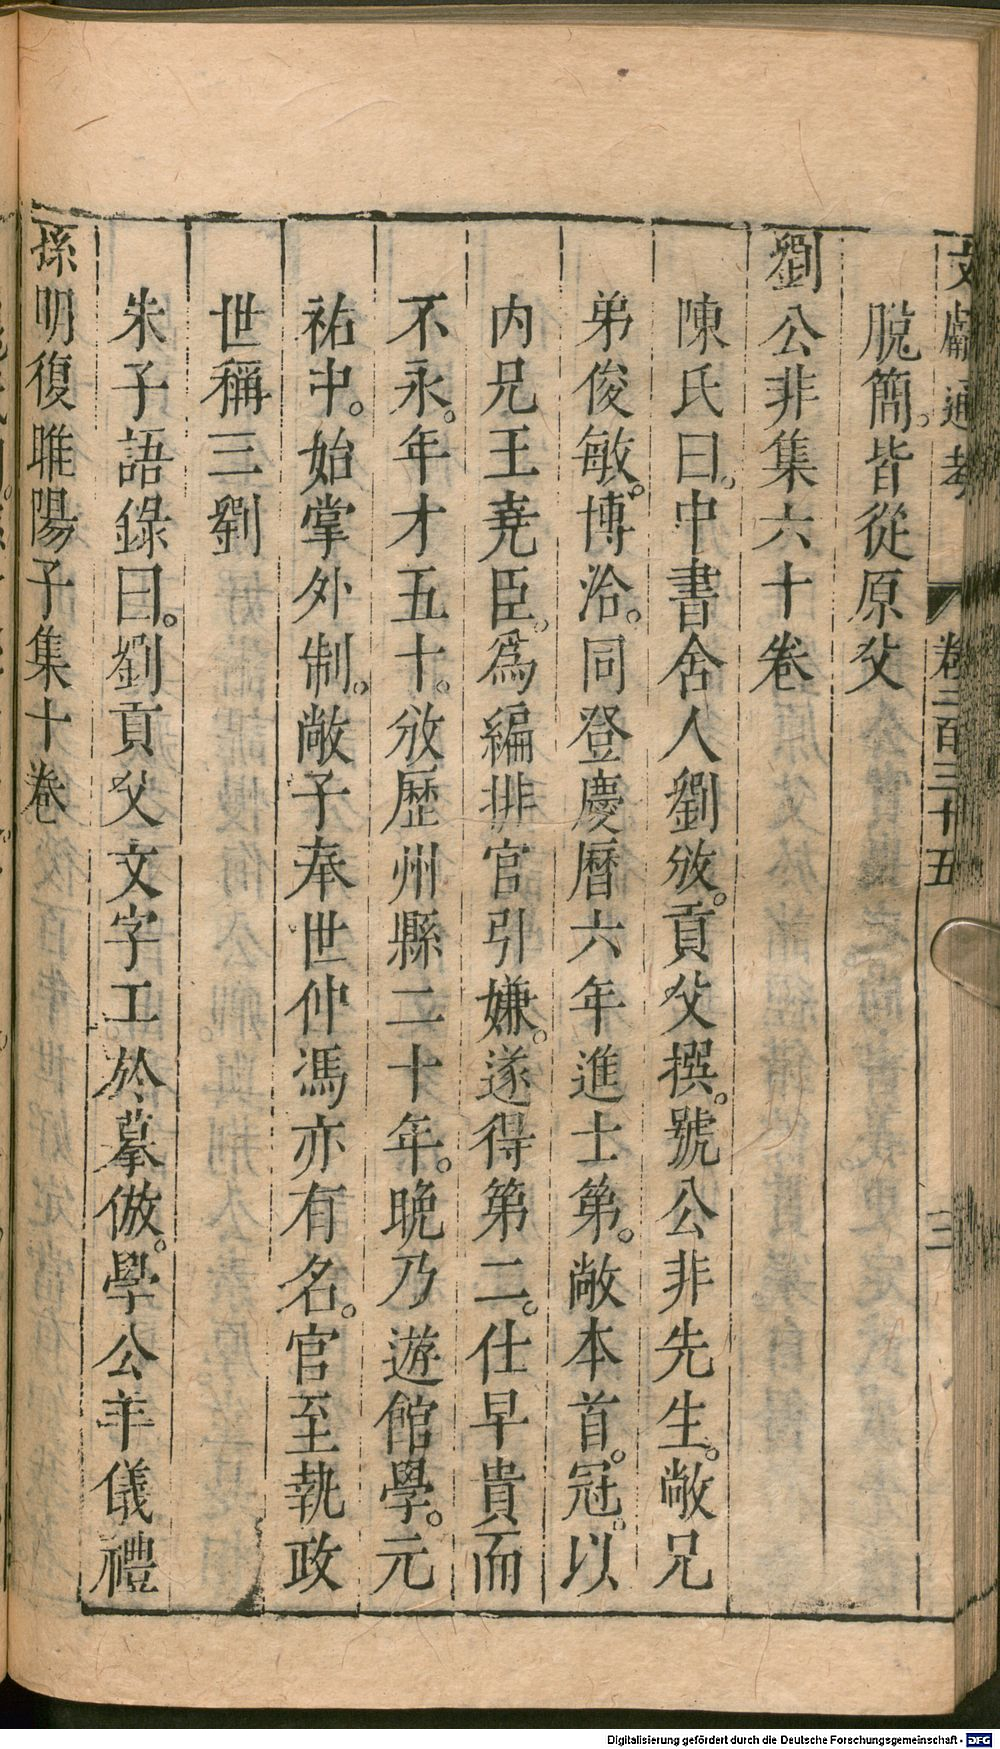 文獻通考 卷二百三十五 二
脫簡。皆從原父
劉公非集六十卷
陳氏曰。中書舍人劉攽。貢父撰。號公非先生。敞兄
弟俊敏。博洽。同登慶曆六年進士第。敞本首。冠。以
內兄王堯臣。爲編排官引嫌。遂得第二。仕早貴而
不永。年才五十。攽歷州縣二十年。晚乃遊館學。元
祐中。始掌外制。敞子奉世仲馮亦有名。官至執政
世稱三劉
朱子語錄曰。劉貢父文字工於摹倣。學公羊儀禮
孫明復睢陽子集十卷
Digitalisierung gefördert durch die Deutsche Forschungsgemeinschaft - DFG